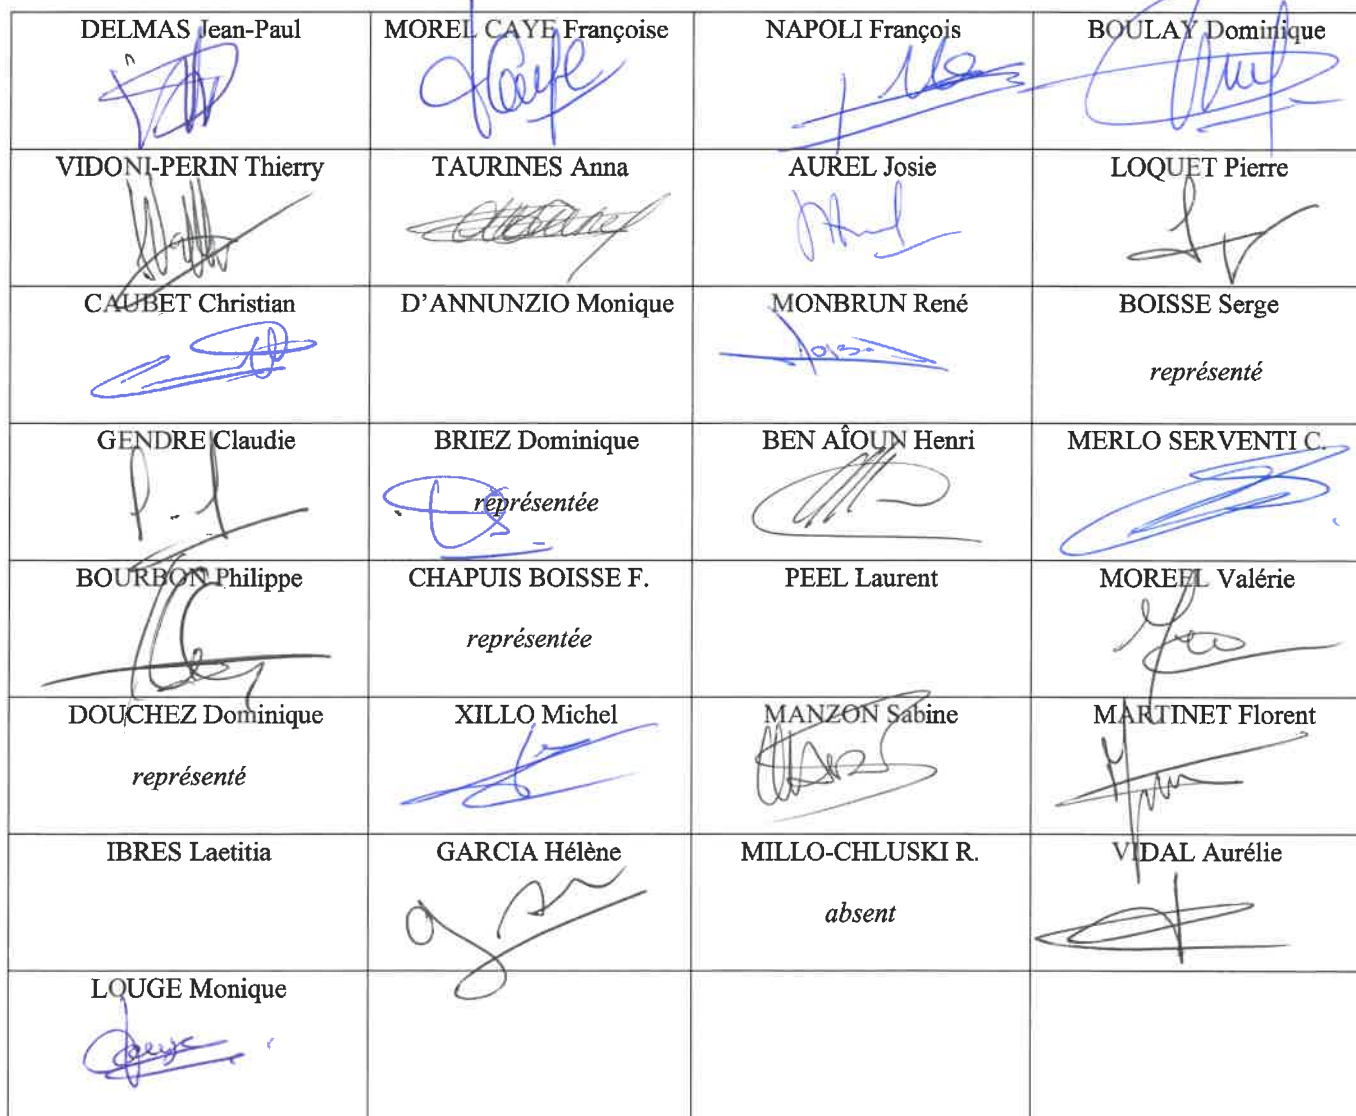 DELMAS Jean-Paul
MOREL CAYE Françoise
NAPOLI François
BOULAY Dominique
VIDONI-PERIN Thierry
TAURINES Anna
AUREL Josie
LOQUET Pierre
CAUBET Christian
D'ANNUNZIO Monique
MONBRUN René
BOISSE Serge
représenté
GENDRE Claudie
BRIEZ Dominique
représentée
BEN AÎOUN Henri
MERLO SERVENTI C.
BOURBON Philippe
CHAPUIS BOISSE F.
représentée
PEEL Laurent
MOREEL Valérie
DOUCHEZ Dominique
représenté
XILLO Michel
MANZON Sabine
MARTINET Florent
IBRES Laetitia
GARCIA Hélène
MILLO-CHLUSKI R.
absent
VIDAL Aurélie
LOUGE Monique